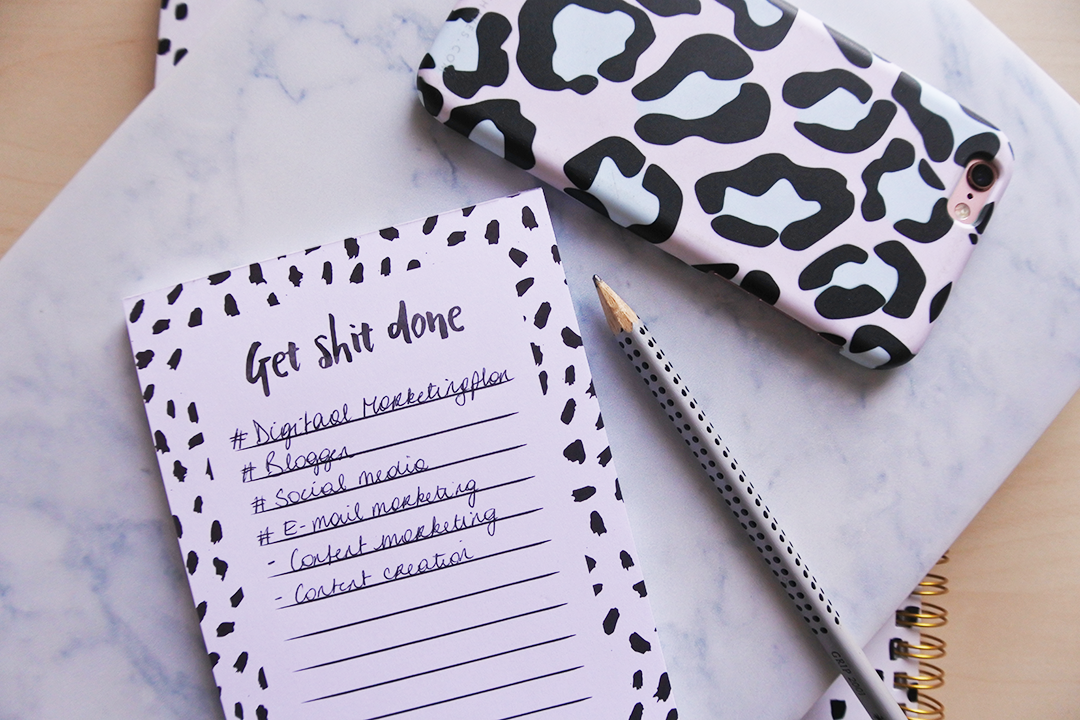 Get shit done
# Digitaal Marketingplan
# Bloggen
# Social media
# E-mail marketing
- Content marketing
- Content creation
GRIP 2001